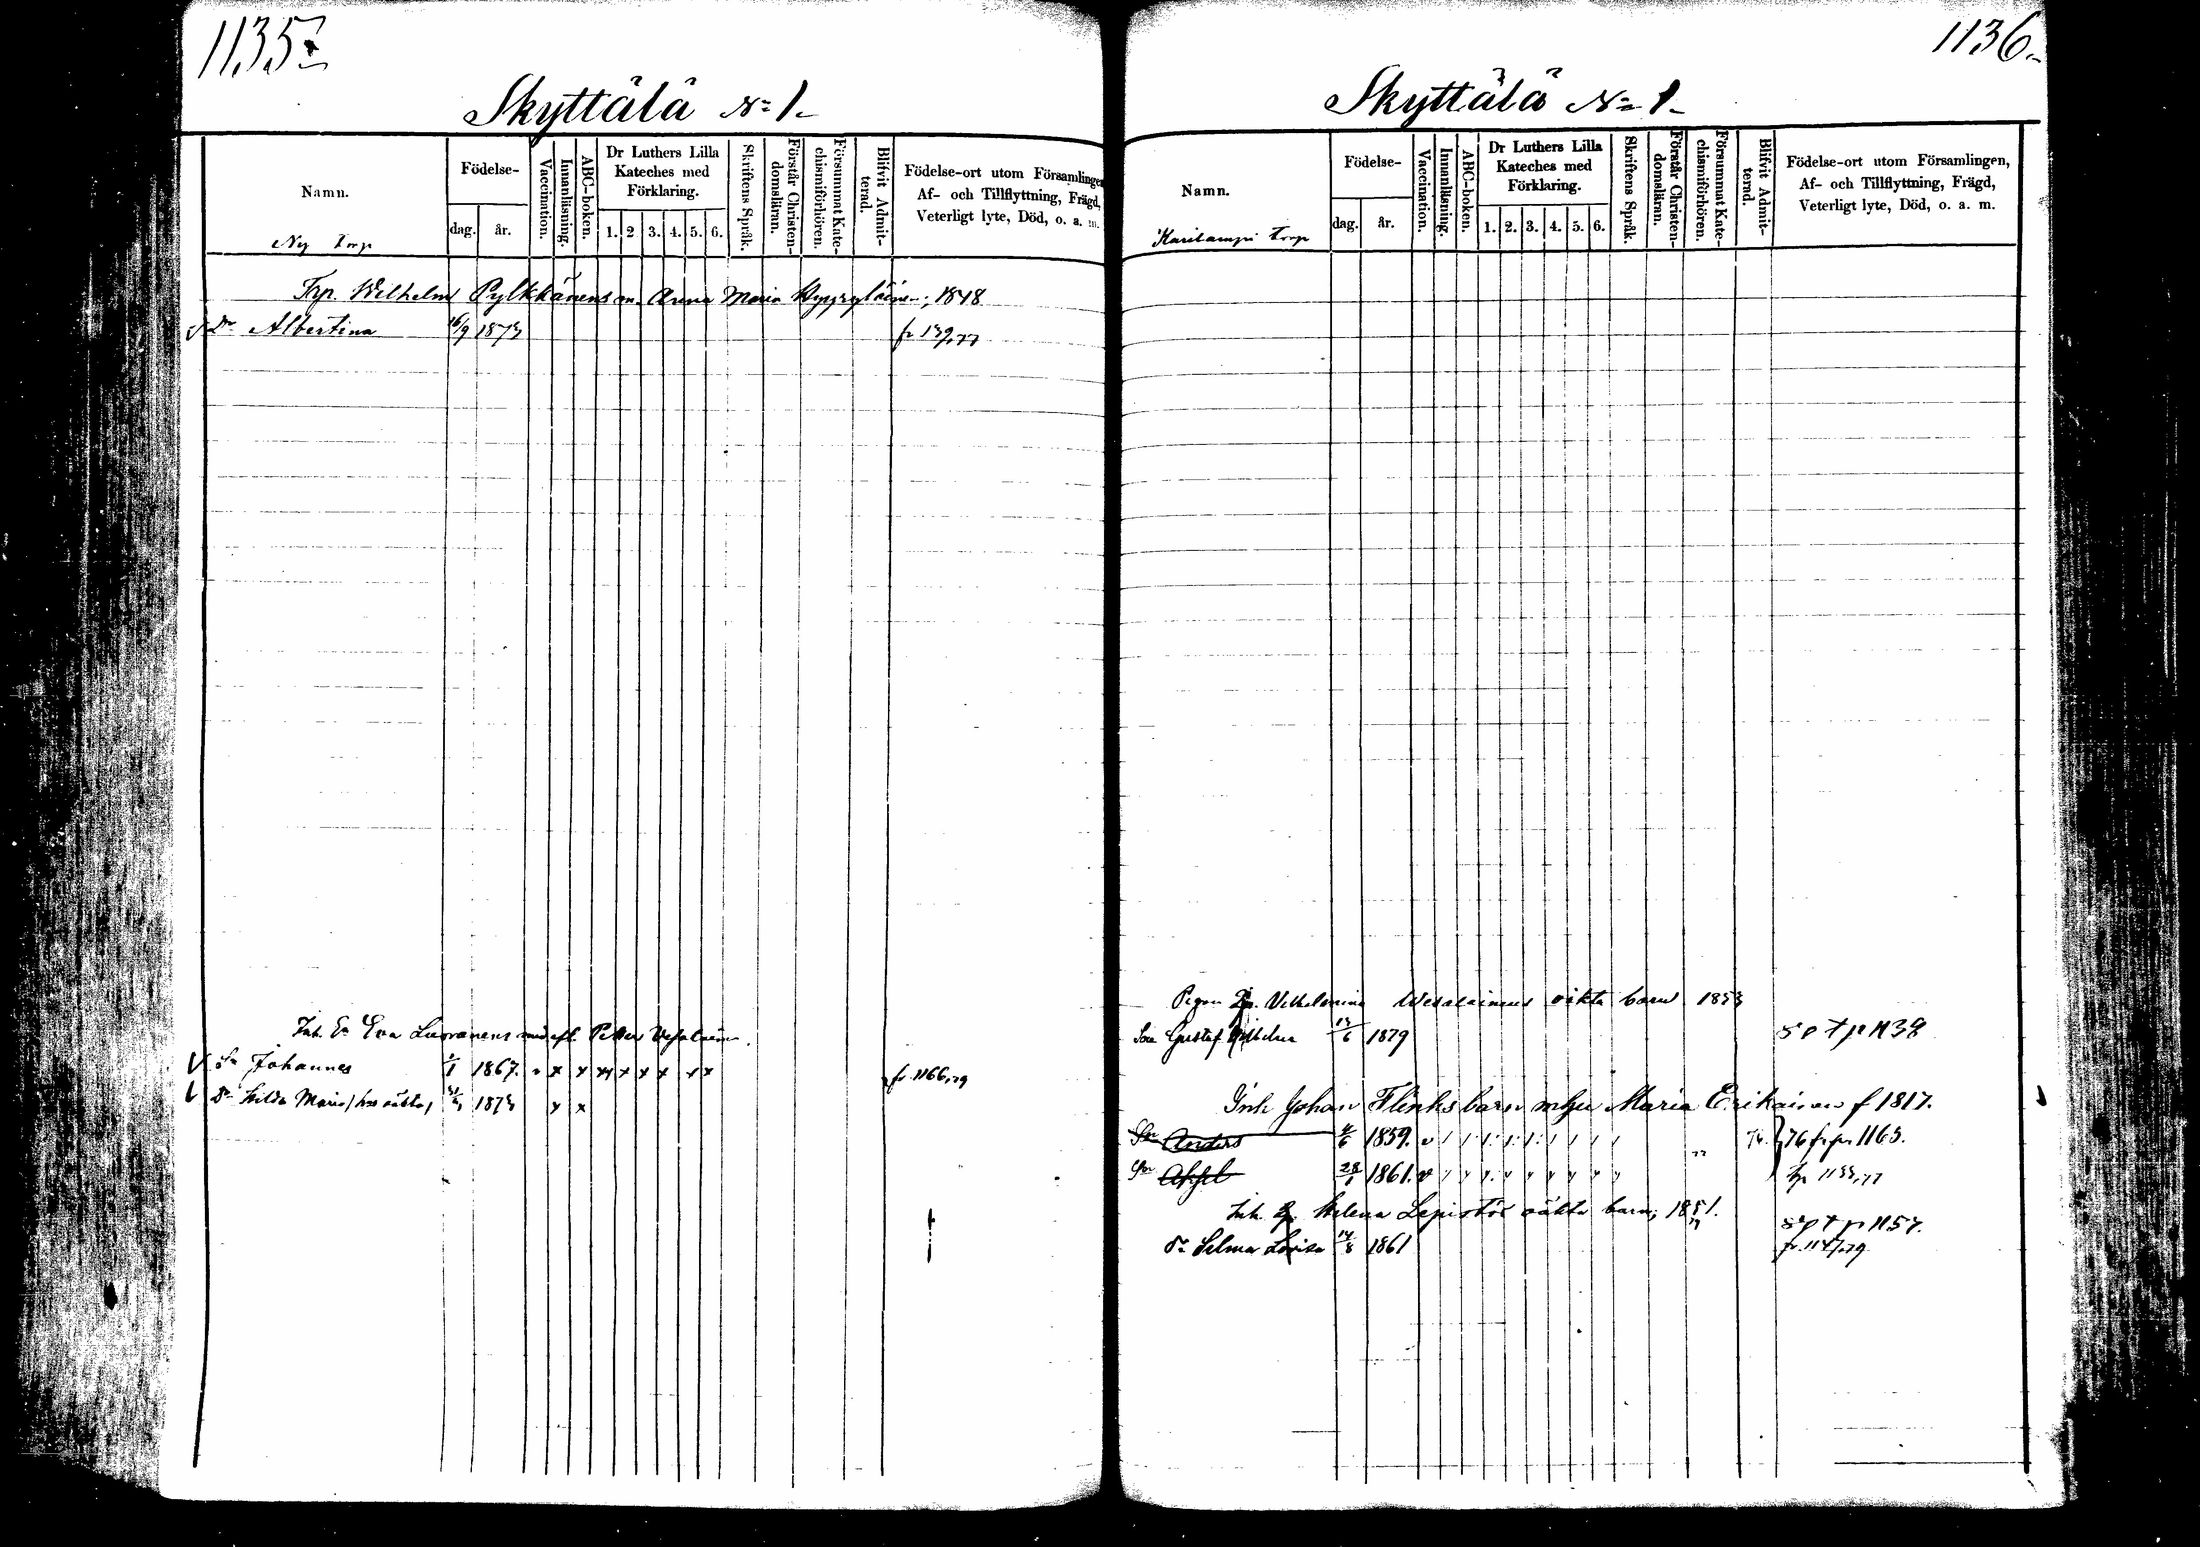 1135
Skyttälä No 1
Namn.
Födelse-
dag. år.
Vaccination.
Innanläsning.
ABC-boken.
Dr Luthers Lilla Kateches med Förklaring.
1. 2 3. 4. 5. 6.
Skriftens Språk.
Förstår Christendomsläran.
Försummat Katechismiförhören.
Blifvit Admitterad.
Födelse-ort utom Församlingen,
Af- och Tillflyttning, Frägd,
Veterligt lyte, Död, o. a. m.
Ny torp
Trp. Wilhelm Pylkkänens m. Anna Maria 1848
Dr Albertina 16/9 1873 fr 139,77
Inh. Eva
Sn Johannes 1867. x x x x x x x x fr. 1166,79
Dr Hilda Maria 1873 x x
1136
Skyttälä No 1
Namn.
Födelse-
dag. år.
Vaccination.
Innanläsning.
ABC-boken.
Dr Luthers Lilla Kateches med Förklaring.
1. 2. 3. 4. 5. 6.
Skriftens Språk.
Förstår Christendomsläran.
Försummat Katechismiförhören.
Blifvit Admitterad.
Födelse-ort utom Församlingen,
Af- och Tillflyttning, Frägd,
Veterligt lyte, Död, o. a. m.
torp
Pigan oäkta barn 1853
Son Gustaf 13/6 1879 1138
Inh Johan Flinks barn Maria Erikainen f 1817.
Son Anders 4/6 1859. 76 fr pn 1165.
Son Axel 28/1 1861.
Inh. Helena Lepistös oäkta barn, 1851. 1157.
Dr Selma Lovisa 14/8 1861 fr. 79